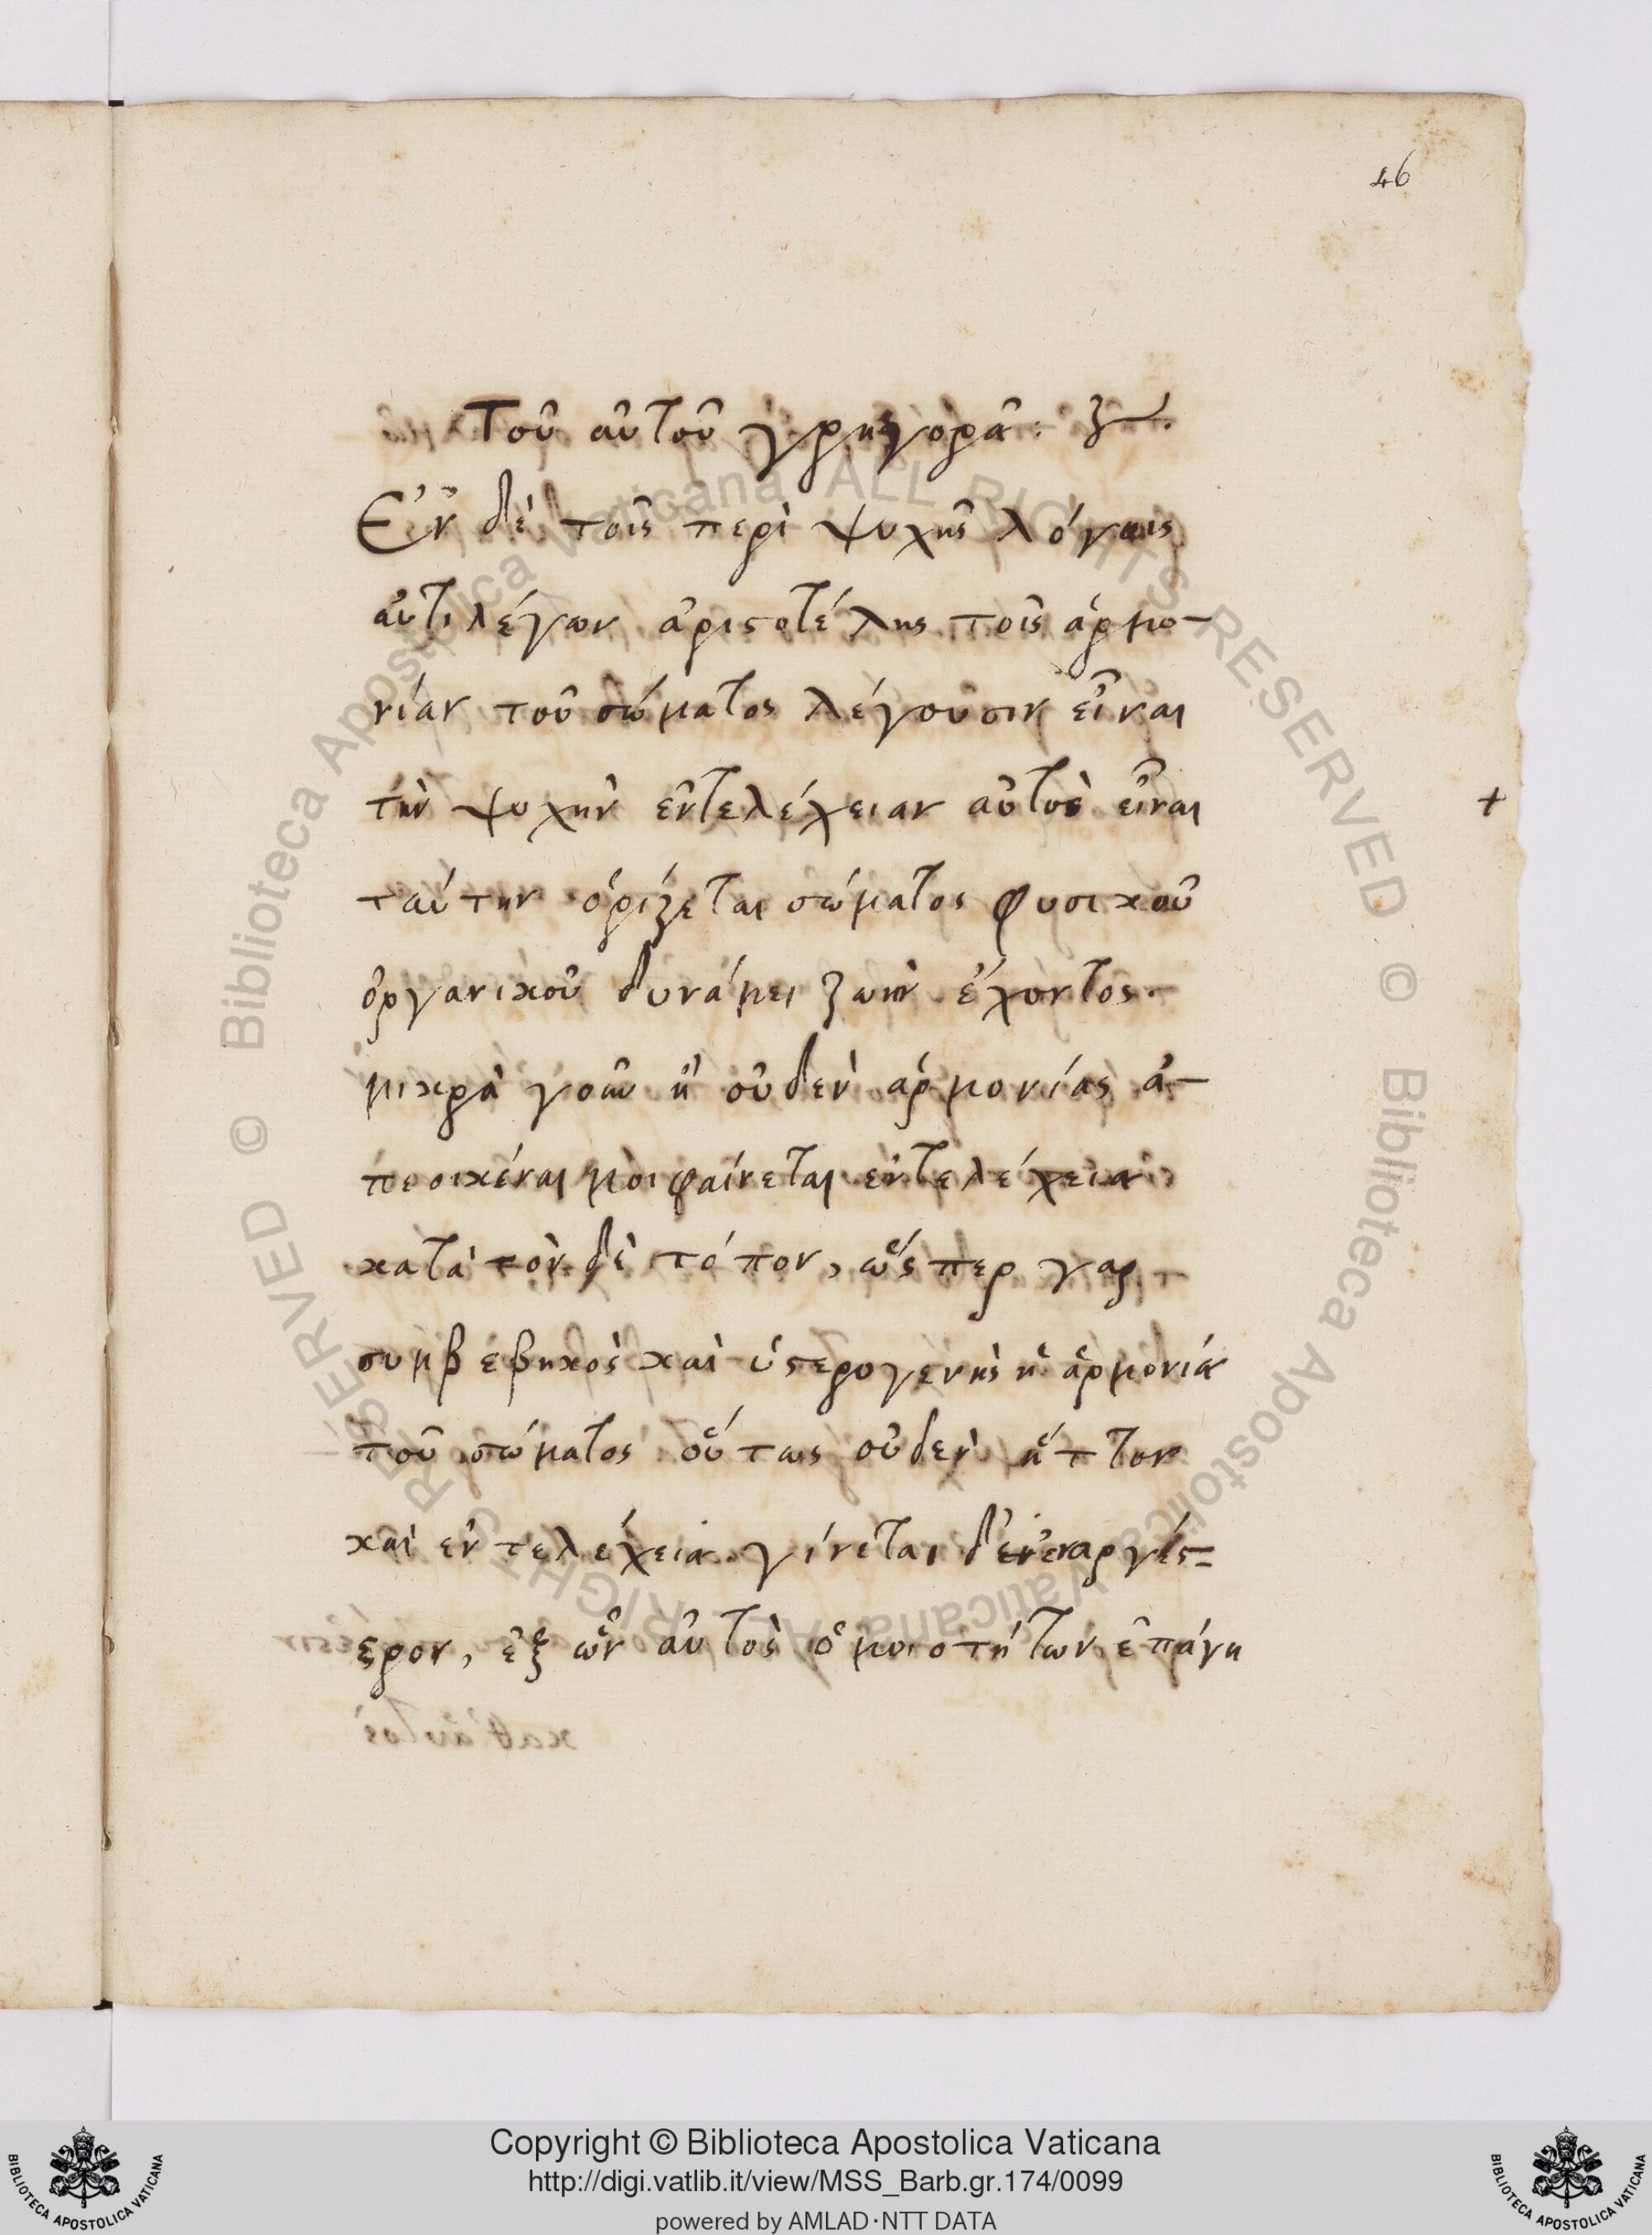 46
Τοῦ αὐτοῦ γρηγορᾶ:
Ἐν δὲ τοῖς περὶ ψυχῆς λόγοις
ἀντιλέγων ἀριστοτέλης τοῖς ἁρμο-
νίαν τοῦ σώματος λέγουσιν εἶναι
τὴν ψυχὴν ἐντελέχειαν αὐτὸς εἶναι
+
ταύτην ὁρίζεται σώματος φυσικοῦ
ὀργανικοῦ δυνάμει ζωὴν ἔχοντος·
μικρὰ γοῦν ἢ οὐδὲν ἁρμονίας ἀ-
πεοικέναι μοι φαίνεται ἐντελέχεια
κατὰ τόνδε τόπον, ὥσπερ γαρ
συμβεβηκὸς καὶ ὑστερογενὴς ἡ ἁρμονία
τοῦ σώματος οὕτως οὐδὲν ἧττον
καὶ ἐντελέχεια· γίνεται δ' ἐναργέσ=
τερον, ἐξ ὧν αὐτὸς ὁμοιοτήτων ἐπάγη
Copyright © Biblioteca Apostolica Vaticana
http://digi.vatlib.it/view/MSS_Barb.gr.174/0099
powered by AMLAD·NTT DATA
BIBLIOTECA APOSTOLICA VATICANA
BIBLIOTECA APOSTOLICA VATICANA
© Biblioteca Apostolica Vaticana ALL RIGHTS RESERVED © Biblioteca Apostolica Vaticana ALL RIGHTS RESERVED